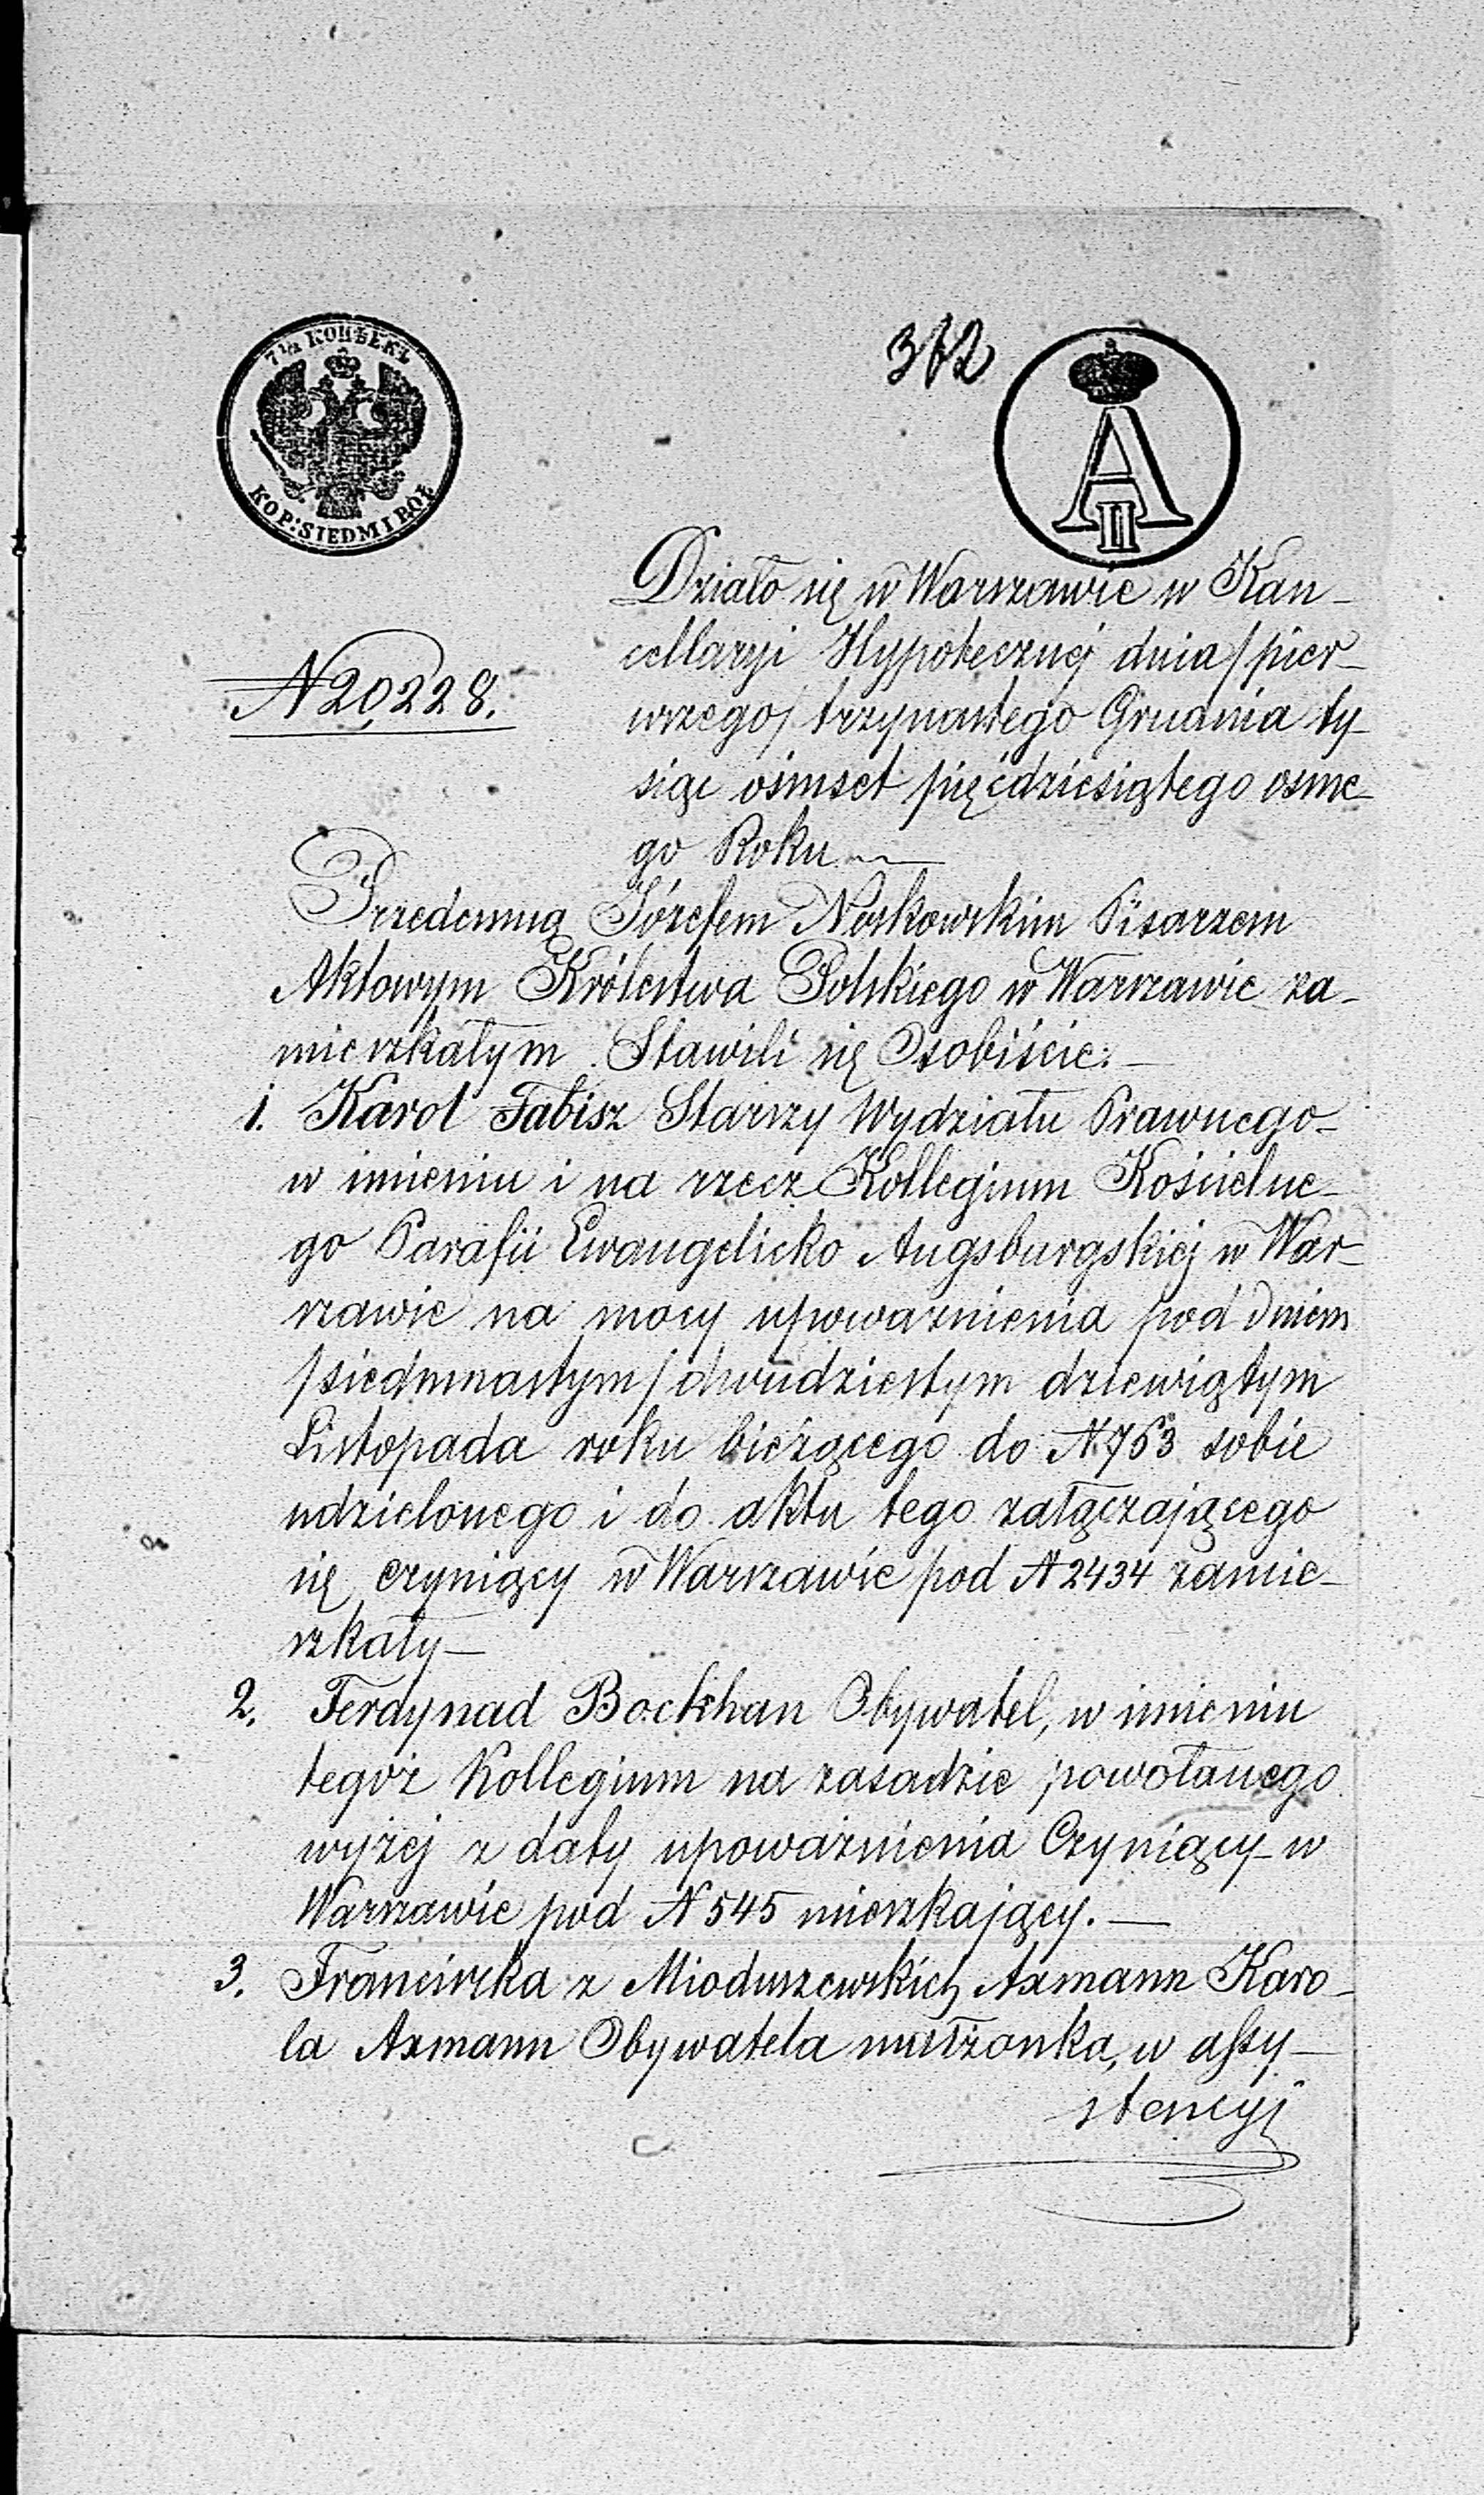 7½ КОПѢЕКЪ
KOP: SIEDM I PÓŁ
362
A II
Działo się w Warszawie w Kan-
cellaryi Hypotecznej dnia /pier-
wszego/ trzynastego Grudnia ty-
siąc ośmset pięćdziesiątego osme-
go Roku.
N 20,228.
Przedemną Józefem Noskowskim Pisarzem
Aktowym Królestwa Polskiego w Warszawie za-
mieszkałym Stawili się Osobiście:
1. Karol Fabisz Starszy Wydziału Prawnego
w imieniu i na rzecz Kollegium Kościelne-
go Parafii Ewangelicko Augsburgskiej w War-
szawie na mocy upoważnienia pod dniem
/siedmnastym/ dwudziestym dziewiątym
Listopada roku bieżącego do N. 763 sobie
udzielonego i do aktu tego załączającego
się czyniący w Warszawie pod N 2434 zamie-
szkały—
2. Ferdynad Bockhan Obywatel, w imieniu
tegoż Kollegium na zasadzie powołanego
wyżej z daty upoważnienia Czyniący w
Warszawie pod N 545 mieszkający.—
3. Franciszka z Mioduszewskich Axmann Karo-
la Axmann Obywatela małżonka, w assy-
stencyi